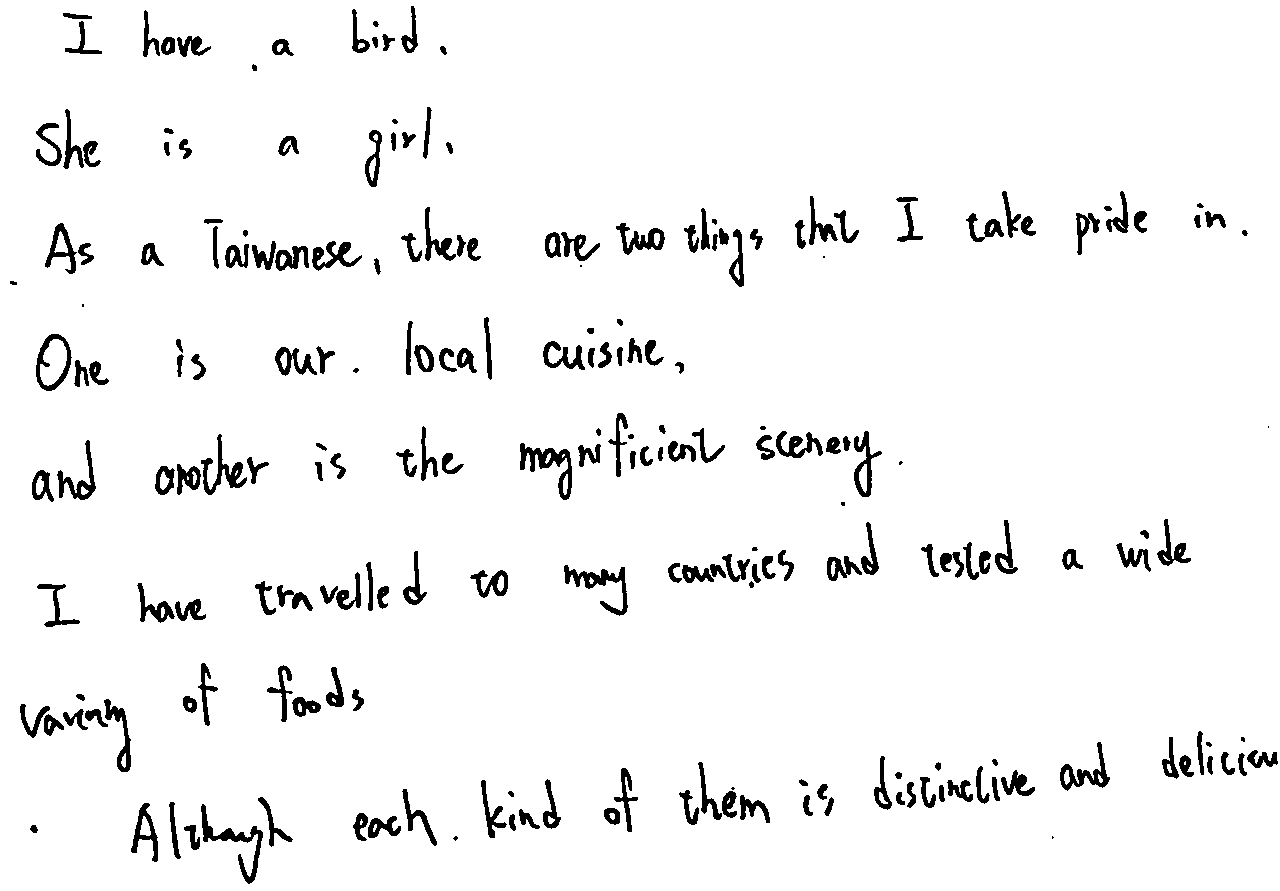 I have a bird.
She is a girl.
As a Taiwanese, there are two things that I take pride in.
One is our local cuisine,
and another is the magnificient scenery.
I have travelled to many countries and tested a wide
variety of foods
Although each kind of them is distinctive and deliciou